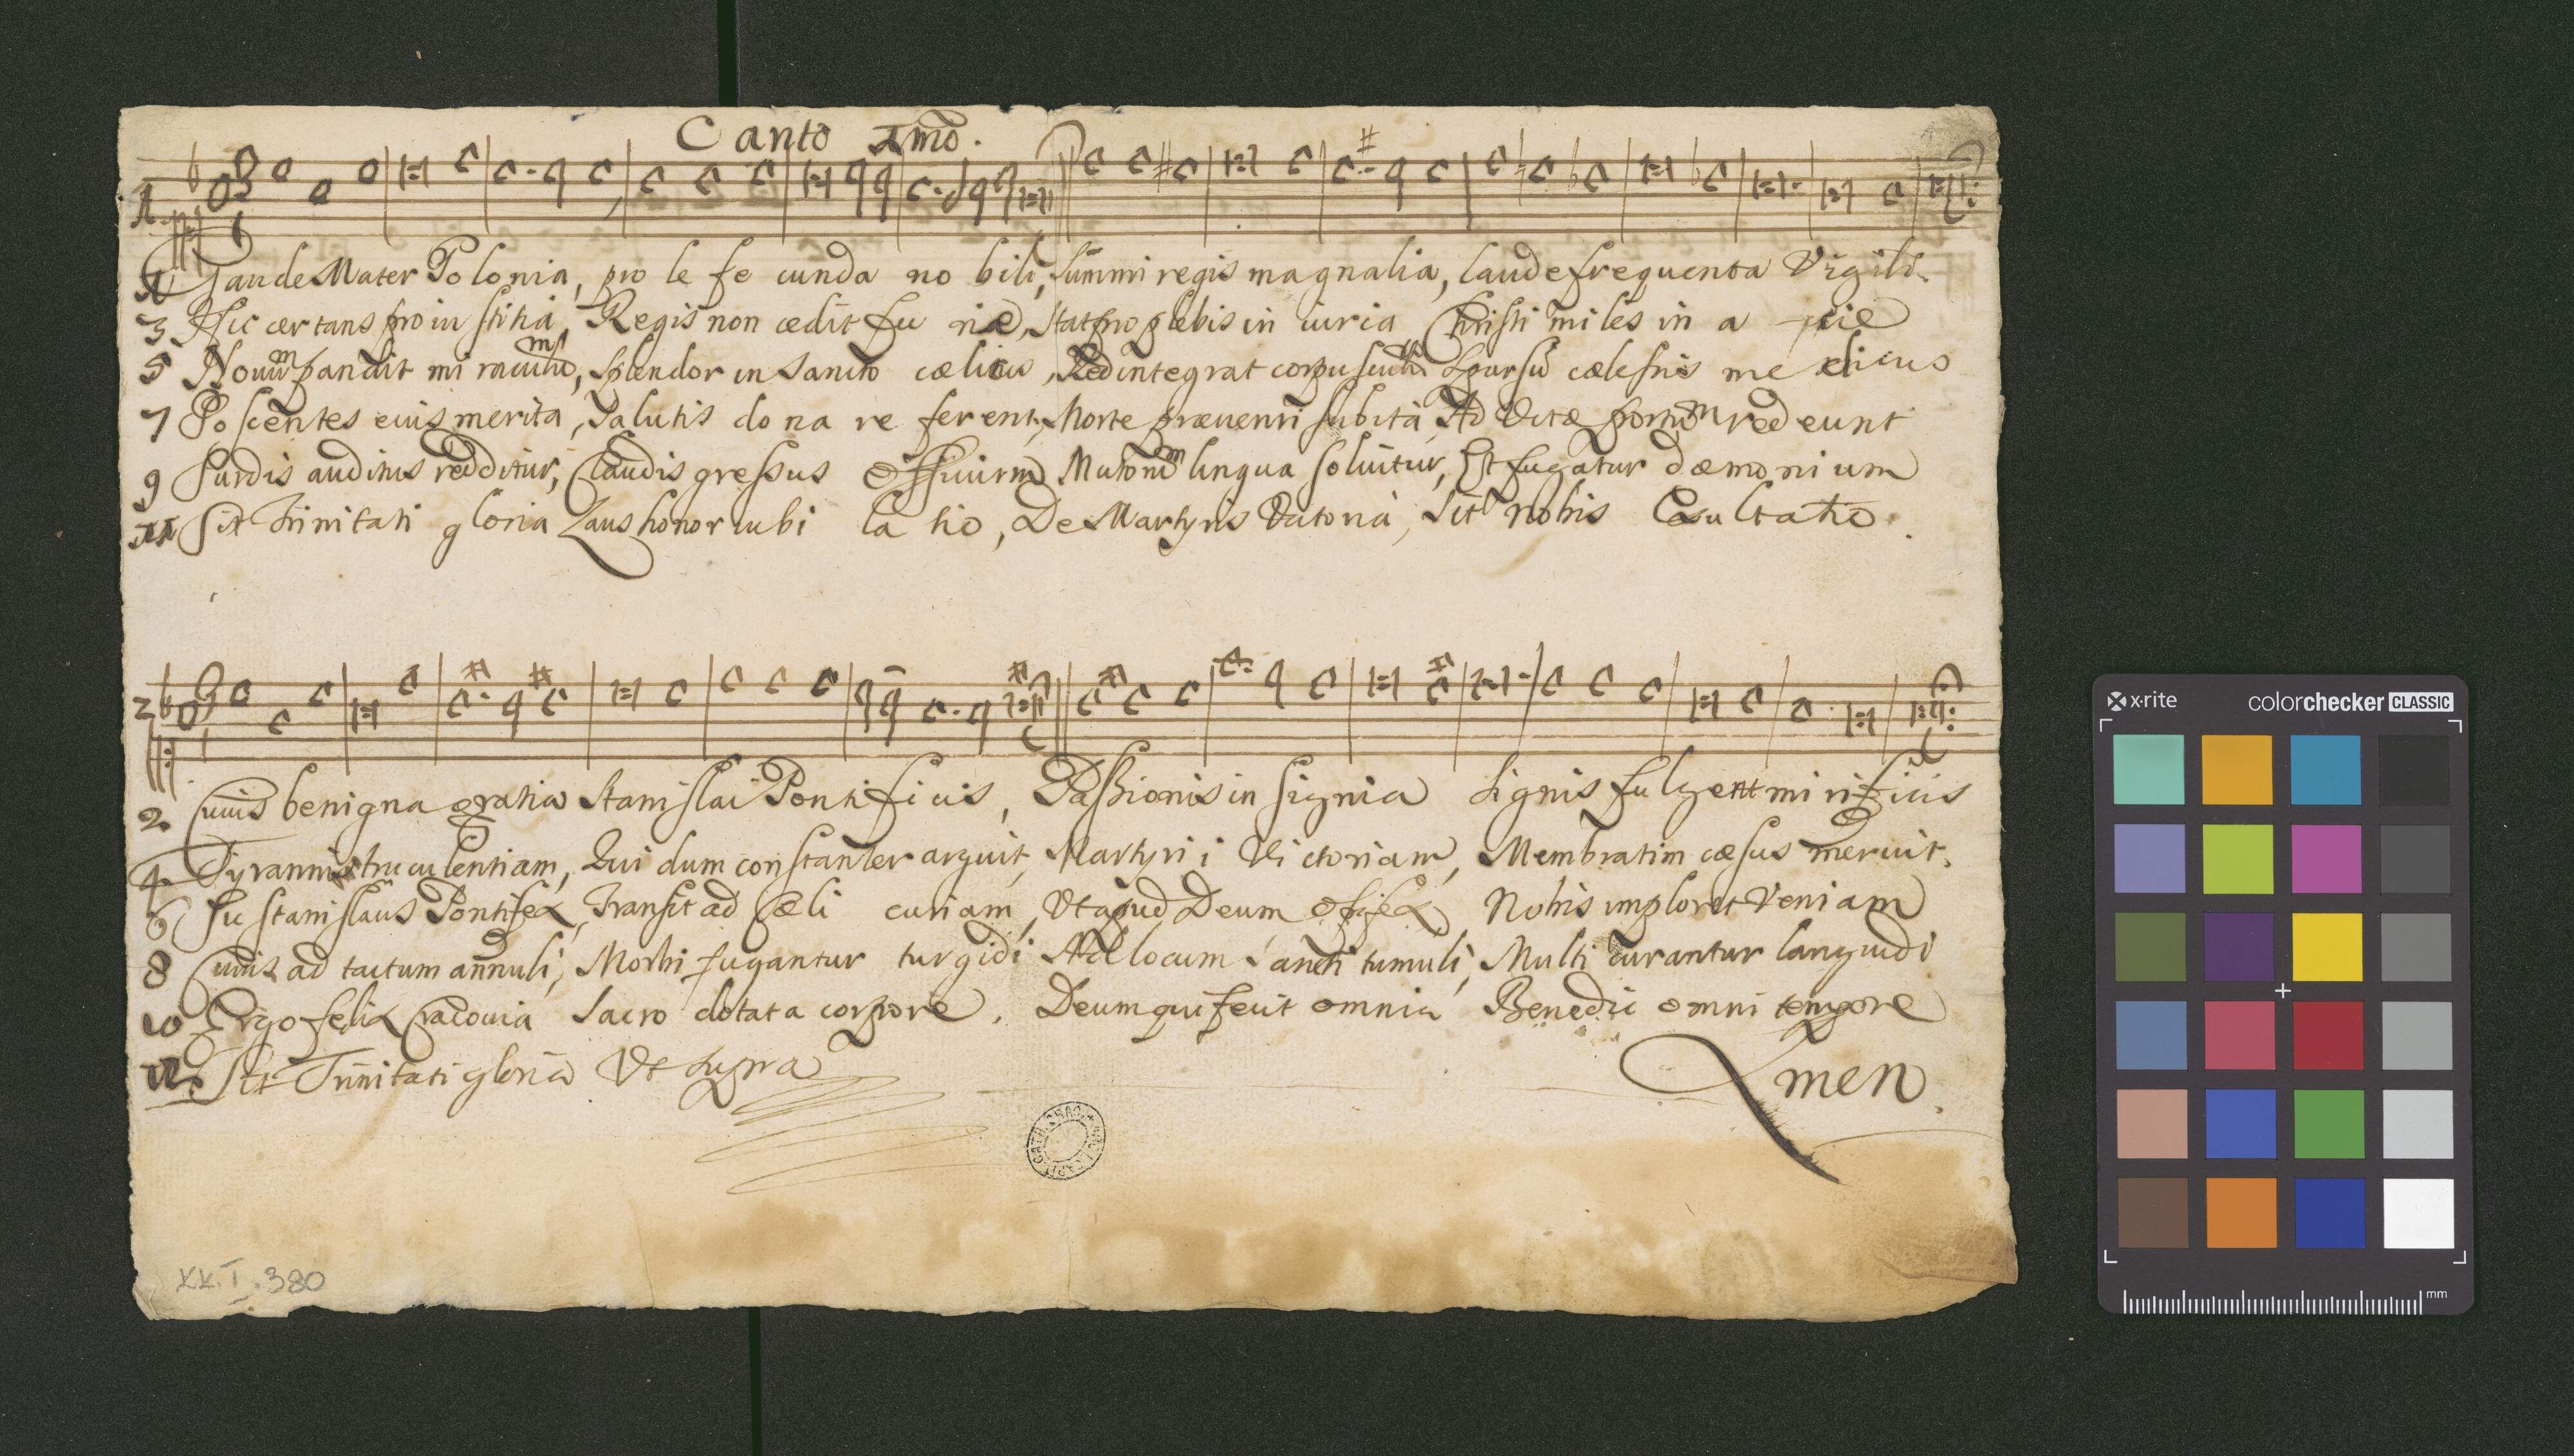 Canto 1mo.
1 Gaude Mater Polonia, pro le fe cunda no bili, Summi regis magnalia, laude frequenta Vigili.
3 Hic certans pro iustitia, Regis non cedit fu riæ, Stat pro plebis in iuria Christi miles in a cie
5 Nouum pandit mi raculum, Splendor in Sancto cælicus, Redintegrat corpusculum Sparsum cælestis me dicus
7 Poscentes eius merita, Salutis do na re ferent, Morte præuenti subita, Ad Vitæ portum red eunt
9 Surdis auditus redditur, Claudis gressus officium Mutorum lingua soluitur, Et fugatur dæmo ni um
11 Sit Trinitati gloria Laus honor iubi la tio, De Martyris Victoria, Sit nobis Exsu ltatio.
2
2. Cuius benigna gratia Stanislai Ponti fi cis, Passionis in signia Signis fulgent mi ri ficis
4 Tyranni truculentiam, Qui dum constanter arguit, Martyri i Vi ctoriam, Membratim cæsus meruit.
6 Sic Stanislaus Pontifex, Transit ad Cæli curiam, Vt apud Deum opifex Nobis imploret Veniam
8 Cuius ad tactum annuli, Morbi fugantur turgidi Ad locum Sancti tumuli, Multi curantur languidi
10 Ergo felix Cracouia Sacro dotata corpore, Deum qui fecit omnia Benedic omni tempore
12. Sit Trinitati gloria Vt supra
Amen.
KK.I.380
x·rite colorchecker CLASSIC
mm